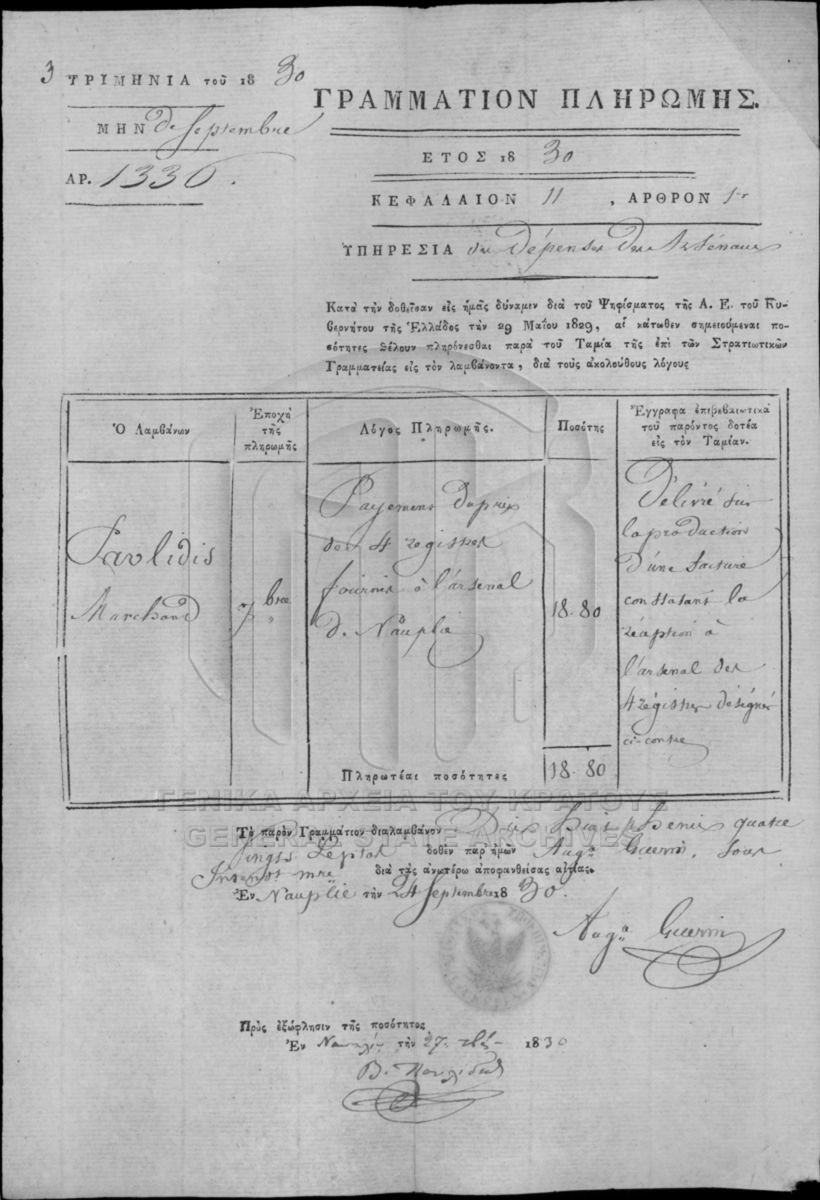 3 ΤΡΙΜΗΝΙΑ τοῦ 18 30
ΜΗΝ de Septembre
ΑΡ. 1336.
ΓΡΑΜΜΑΤΙΟΝ ΠΛΗΡΩΜΗΣ.
ΕΤΟΣ 18 30
ΚΕΦΑΛΑΙΟΝ 11 , ΑΡΘΡΟΝ 1er
ΥΠΗΡΕΣΙΑ des Dépenses des Arsénaux
Κατὰ τὴν δοθεῖσαν εἰς ἡμᾶς δύναμιν διὰ τοῦ Ψηφίσματος τῆς Α. Ε. τοῦ Κυ-
βερνήτου τῆς Ἑλλάδος τὴν 29 Μαΐου 1829, αἱ κάτωθεν σημειούμεναι πο-
σότητες θέλουν πληρόνεσθαι παρὰ τοῦ Ταμία τῆς ἐπὶ τῶν Στρατιωτικῶν
Γραμματείας εἰς τὸν λαμβάνοντα, διὰ τοὺς ἀκολούθους λόγους
Ὁ Λαμβάνων
Ἐποχὴ
τῆς
πληρωμῆς
Λόγος Πληρωμῆς.
Ποσότης
Ἔγγραφα ἐπιβεβαιωτικὰ
τοῦ παρόντος δοτέα
εἰς τὸν Ταμίαν.
Pavlidis
Marchand
7bre
Payement du prix
des 4 registres
fournis à l'arsenal
de Nauplie
18.80
Délivré sur
la production
d'une facture
constatant la
réception à
l'arsenal des
4 régistres désignés
ci-contre
Πληρωτέαι ποσότητες 18.80
ΓΕΝΙΚΑ ΑΡΧΕΙΑ ΤΟΥ ΚΡΑΤΟΥΣ
GENERAL STATE ARCHIVES
Τὸ παρὸν Γραμμάτιον διαλαμβάνον Dix huit phenix quatre
vingts Leptas δοθὲν παρ' ἡμῶν Augn Guerin, Sous
Intendt mre διὰ τὰς ἀνωτέρω ἀποφανθείσας αἰτίας.
Ἐν Nauplie τὴν 24 Septembre 18 30.
Augn Guerin
Πρὸς ἐξώφλησιν τῆς ποσότητος
Ἐν Ναυπλίῳ τὴν 27 1830
Β. Παυλίδης